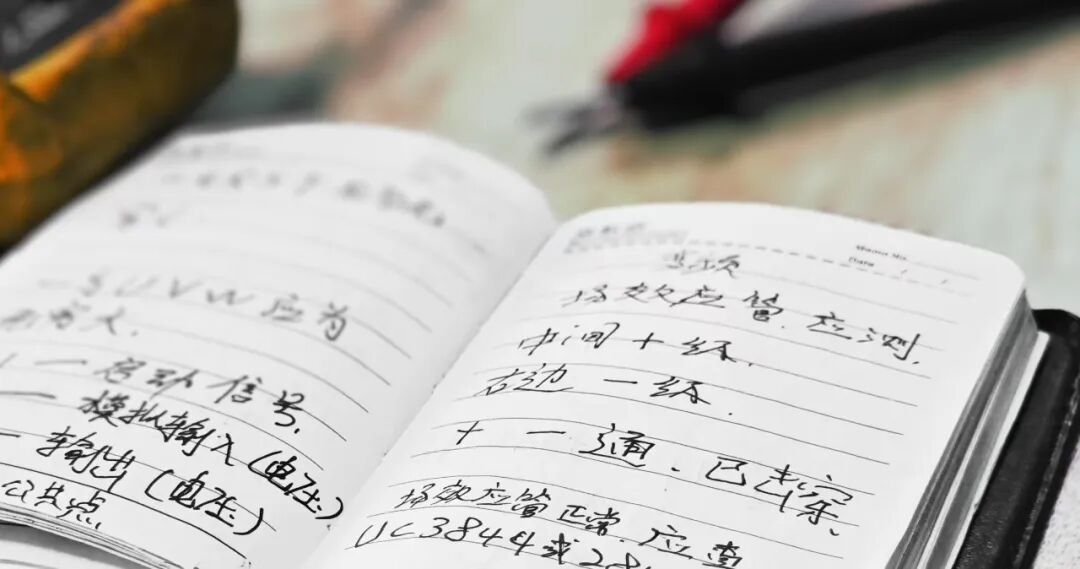 SUVW应为
一启动信号.
一模拟输入(电压)
一输出(电压)
公共点
Memo No.
Date
场效应管.应测.
中间+级.
右边一级.
+一通.已击穿.
场效应管正常.应查
UC3844或28